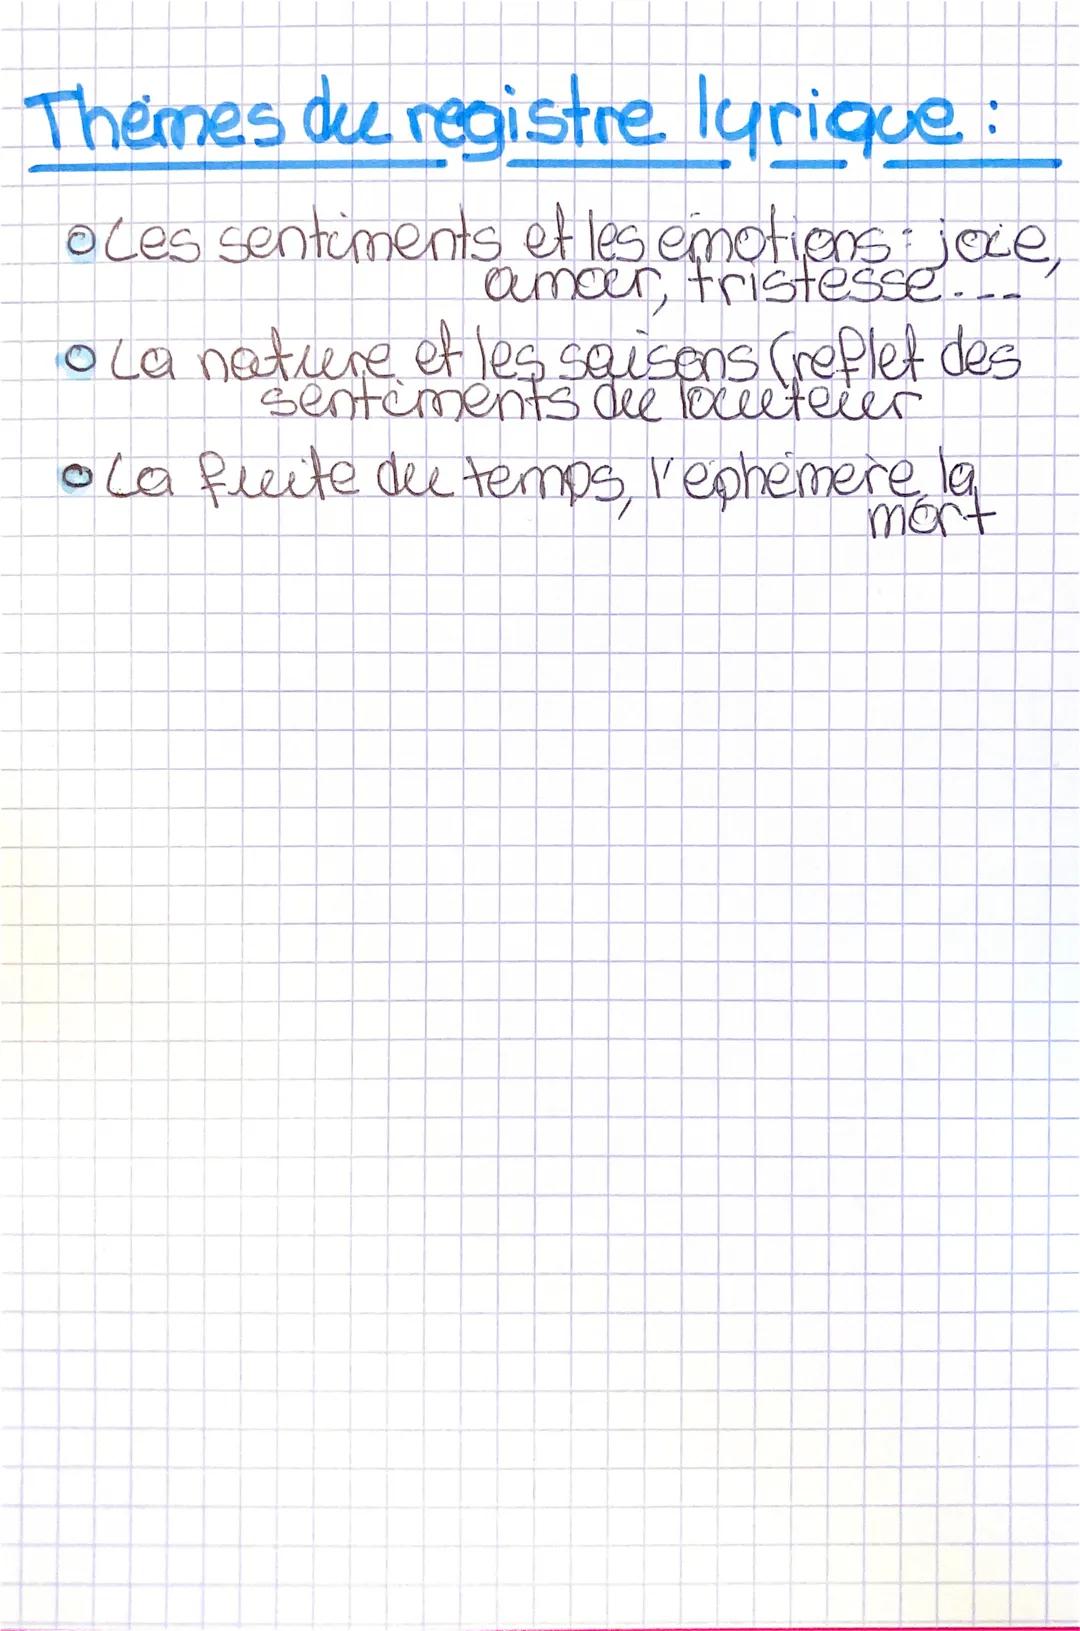 Thèmes du registre lyrique :
Les sentiments et les émotions : joie,
amour, tristesse...
La nature et les saisons (reflet des
sentiments du locuteur
La fuite du temps, l'éphémère, la
mort